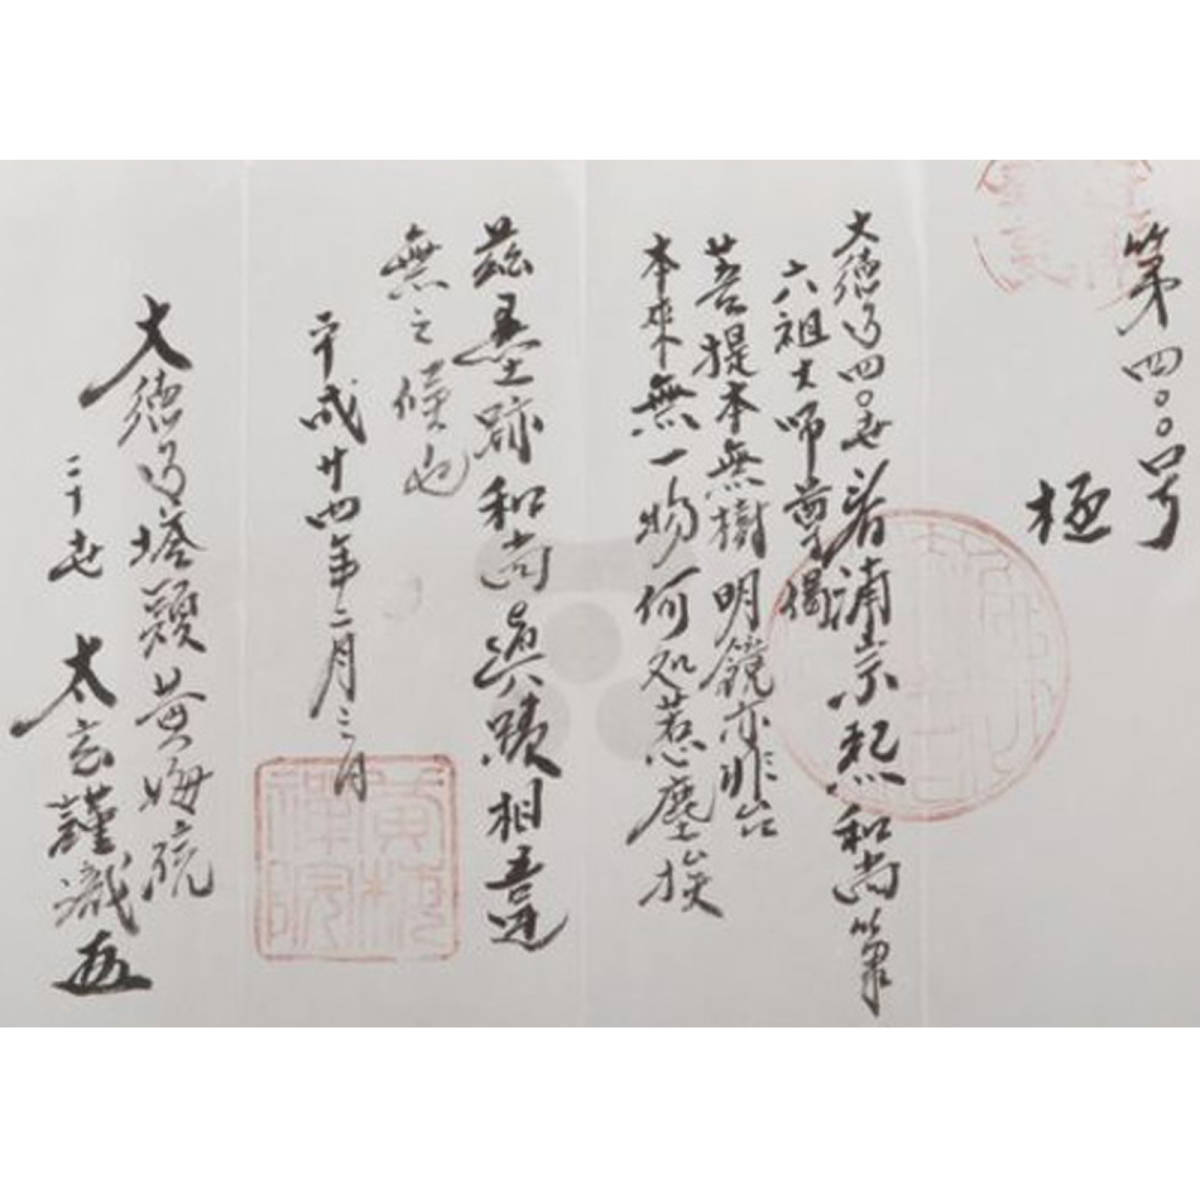 第四〇〇号
極
大徳寺四〇世春浦宗熙和尚筆
六祖大師尊偈
菩提本無樹明鏡亦非台
本来無一物何処惹塵埃
茲墨跡和尚真蹟相違
無之候也
平成廿四年二月二日
大徳寺塔頭黄梅院
二十世 太玄謹識
黄梅
禅院